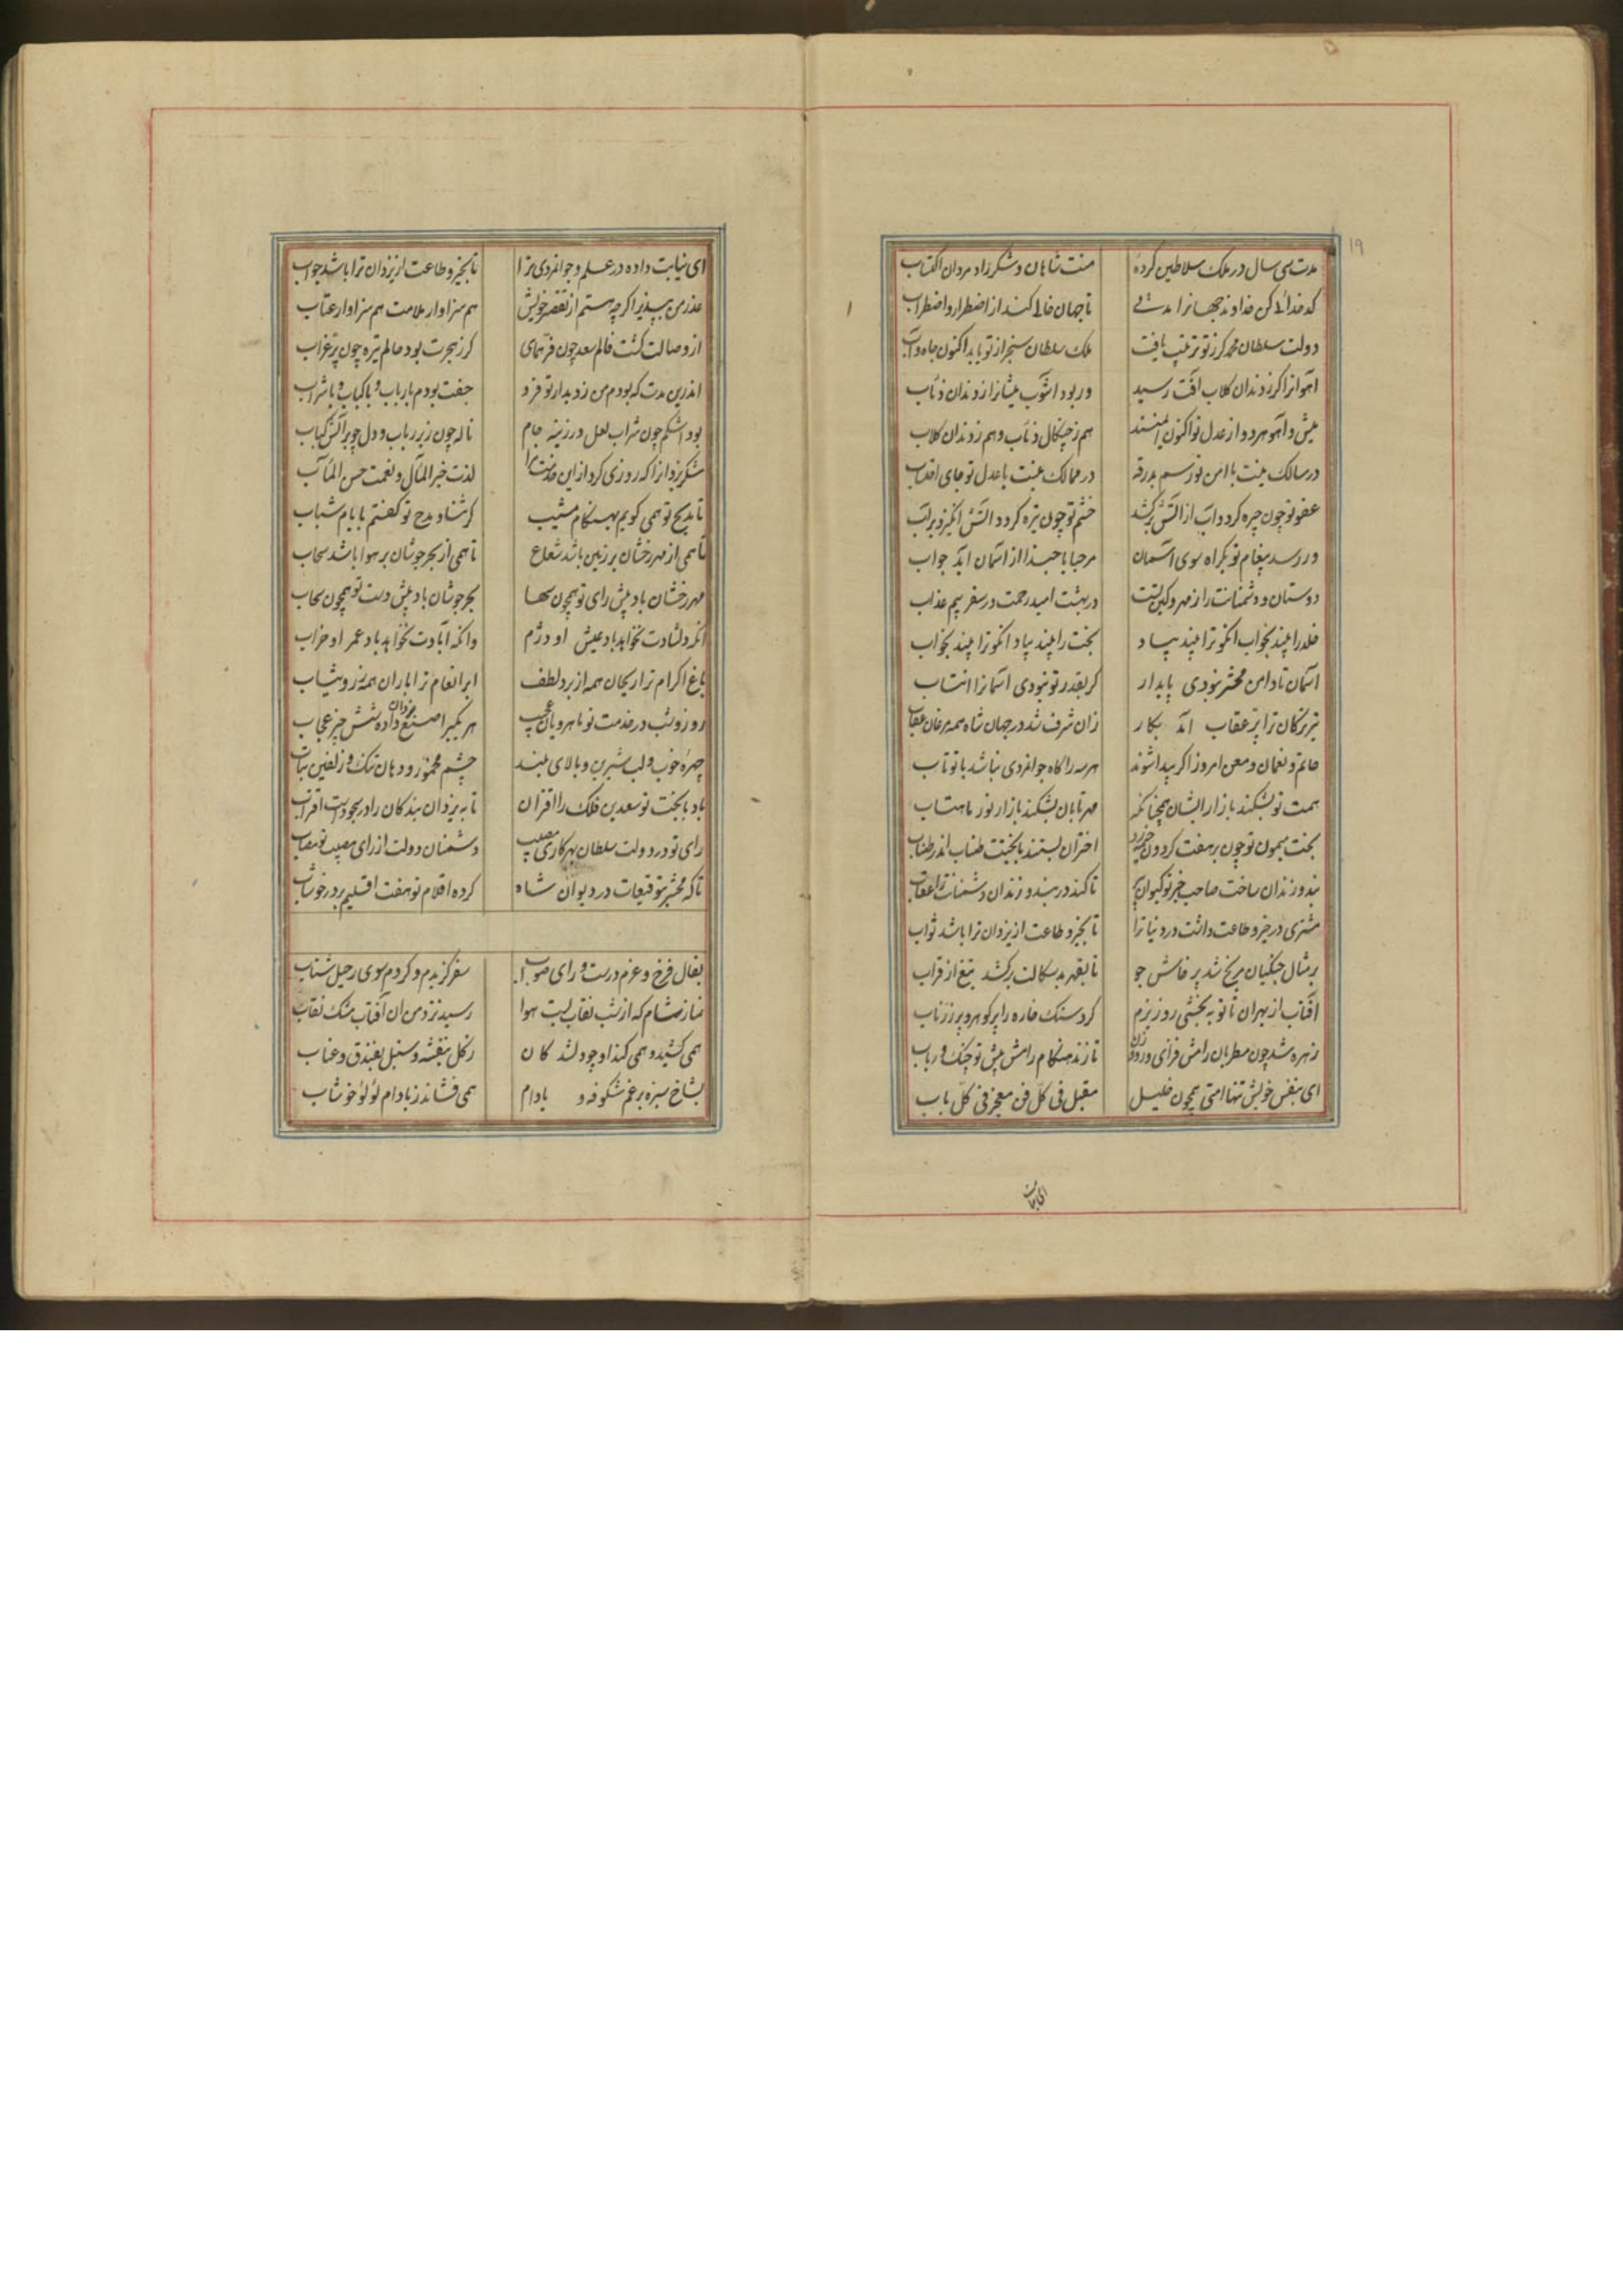 ۱۹
مدت سی سال در ملک سلاطین کرده منت شاهان و شکر زاد مردان اکتساب
کدخدائی کن خداوند جهانرا مدتی تا جهان خالی کند از اضطرار و اضطراب
دولت سلطان محمد کز تو ترتیب یافت ملک سلطان سنجر از تو یابد اکنون جاه و آب
آهوانرا کر ز دندان کلاب آفت رسید ور بود آشوب میشانرا ز دندان ذئاب
میش و آهو هر دو از عدل تو اکنون ایمنند هم ز چنکال ذئاب و هم ز دندان کلاب
در مسالک نیست با امن تو رسم بدرقه در ممالک نیست با عدل تو جای
عفو تو چون چیره کردد آب از آتش برکشد خشم تو چون تیره کردد آتش انکیزد ز آب
ور رسد پیغام تو یکراه سوی آسمان مرحبا یا حبذا از آسمان آید جواب
دوستان و دشمنانت را ز مهر و کین تست در بهشت امید رحمت در سقر بیم عذاب
خلد را بیند بخواب آنکو ترا بیند بیداد بخت را بیند بیدا آنکو ترا بیند بخواب
آسمان تا دامن محشر نبودی پایدار کر بقدر تو نبودی آسمانرا انتساب
تیر ترکان ترا پر عقاب آید بکار زان شرف شد در جهان شاه همه مرغان عقاب
حاتم و نعمان و معن امروز اکر پیدا شوند هر سه را کاه جوانمردی نباشد با تو تاب
همت تو بشکند بازار ایشان همچنانکه مهر تابان بشکند بازار نور ماهتاب
بخت میمون تو چون بر هفت کردون خیمه زد اختران بستند با بختت طناب اندر طناب
بند و زندان ساخت صاحب خبر تو کیوان تا کند در بند و زندان دشمنانت را عقاب
مشتری در خیر و طاعت داشت در دنیا ترا تا بخیر و طاعت از یزدان ترا باشد ثواب
بر مثال جنکیان مریخ شد پرخاش جو تا بقهر بدسکالت برکشد تیغ از قراب
آفتاب از بهر آن تا تو ببخشی روز بزم کرد سنک خاره را پر کوهر و پر زر ناب
زهره شد چون مطربان رامش فزای و رودزن تا زند هنکام رامش پیش تو چنک و رباب
ای بنفس خویش تنها امتی همچون خلیل مقبل فی کل فن معجز فی کل باب
ای نیابت داده در علم و جوانمردی ترا تا بخیر و طاعت از یزدان ترا باشد جواب
عذر من بپذیر اکر چه هستم از تقصیر خویش هم سزاوار ملامت هم سزاوار عتاب
از وصالت کشت فالم سعد چون فر همای کز هجرت بود حالم تیره چون پر غراب
اندرین مدت که بودم من ز دیدار تو فرد جفت بودم با رباب و با کباب و با شراب
بود اشکم چون شراب لعل در زرینه جام ناله چون زیر رباب و دل چو بر آتش کباب
شکر یزدانرا که روزی کرد از این خدمت مرا لذت خیر المآل و نعمت حسن المآب
تا مدیح تو همی کویم بهنکام مشیب کر ثنا و مدح تو کفتم بایام شباب
تا همی از مهر رخشان بر زمین باشد شعاع تا همی از بحر جوشان بر هوا باشد سحاب
مهر رخشان باد پیش رای تو همچون سها بحر جوشان باد پیش دست تو همچون سراب
آنکه دلشادت نخواهد باد عیش او دژم وانکه آبادت نخواهد باد عمر او خراب
باغ اکرام ترا ریحان همه از برد لطف ابر انعام ترا باران همه زر و ثیاب
روز و شب در خدمت تو ماهرویان عجیب هر یکی را صنع یزدان داده شش چیز عجاب
چهرهٔ خوب و لب شیرین و بالای بلند چشم مخمور و دهان تنک و زلفین بتاب
باد با بخت تو سعدین فلک را اقتران تا به یزدان بندکان را در سجودست اقتراب
رای تو در دولت سلطان بهر کاری مصیب دشمنان دولت از رای مصیب تو مصاب
تا که محشر توقیعات در دیوان شاه کرده اقلام تو هفت اقلیم پر در خوشاب
بفال فرخ و عزم درست و رای صواب سفر کزیدم و کردم سوی رحیل شتاب
نماز شام که از شب نقاب بست هوا رسید نزد من آن آفتاب مشک نقاب
همی کشید و همی کند او چو دلشد کان ز کل بنفشه و سنبل بفندق و عناب
بشاخ سبزه بر غم شکوفه و بادام همی فشاند ز بادام لؤلؤ خوشاب